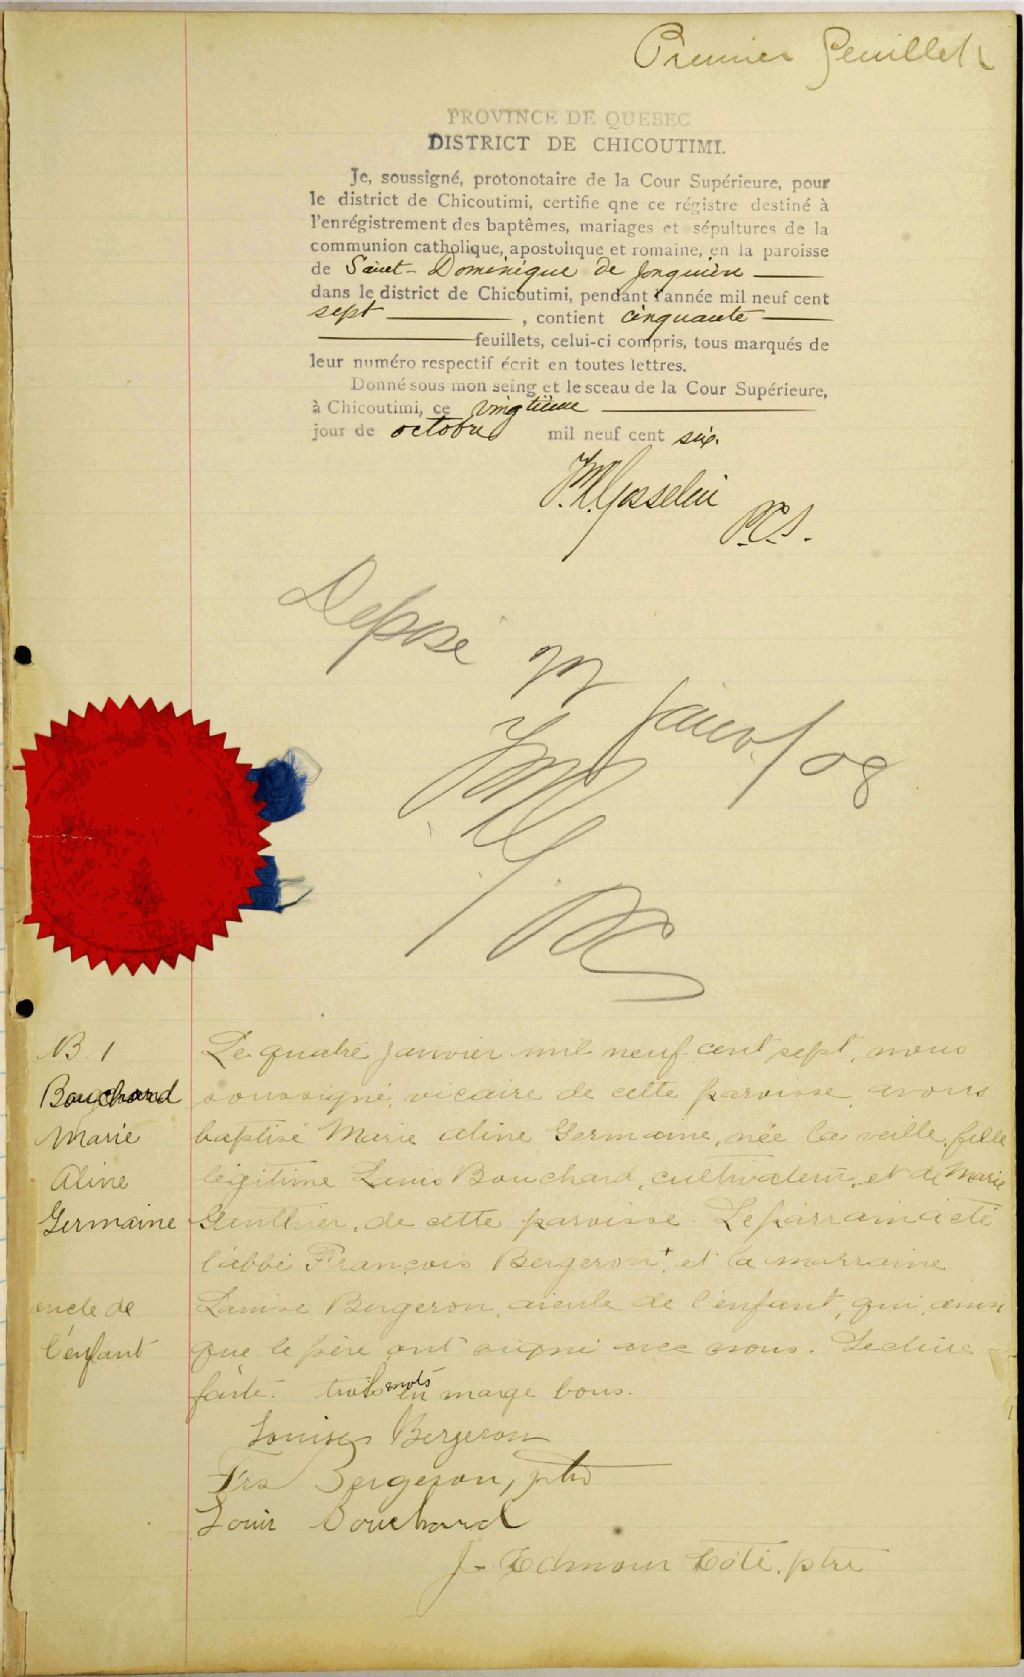 Premier feuillet
PROVINCE DE QUEBEC
DISTRICT DE CHICOUTIMI.
Je, soussigné, protonotaire de la Cour Supérieure, pour
le district de Chicoutimi, certifie qne ce régistre destiné à
l'enrégistrement des baptêmes, mariages et sépultures de la
communion catholique, apostolique et romaine, en la paroisse
de Saint-Dominique de Jonquière
dans le district de Chicoutimi, pendant l'année mil neuf cent
sept, contient cinquante
feuillets, celui-ci compris, tous marqués de
leur numéro respectif écrit en toutes lettres.
Donné sous mon seing et le sceau de la Cour Supérieure,
à Chicoutimi, ce vingtième
jour de octobre mil neuf cent six.
Gosselin
P.C.S.
Déposé janv./08
B. 1
Bouchard
Marie
Aline
Germaine
Le quatre janvier mil neuf cent sept, nous
soussigné, vicaire de cette paroisse avons
baptisé Marie Aline Germaine, née la veille, fille
légitime Louis Bouchard, cultivateur, et de Marie
Gauthier, de cette paroisse. Le parrain a été
l'abbé François Bergeron+ et la marraine
oncle de
l'enfant
Louise Bergeron, aieule de l'enfant, qui, ainsi
que le père ont signé avec nous. Lecture
faite. trois mots en marge bons.
Louise Bergeron
Frs Bergeron, ptre
Louis Bouchard
J. Edmour Côté, ptre